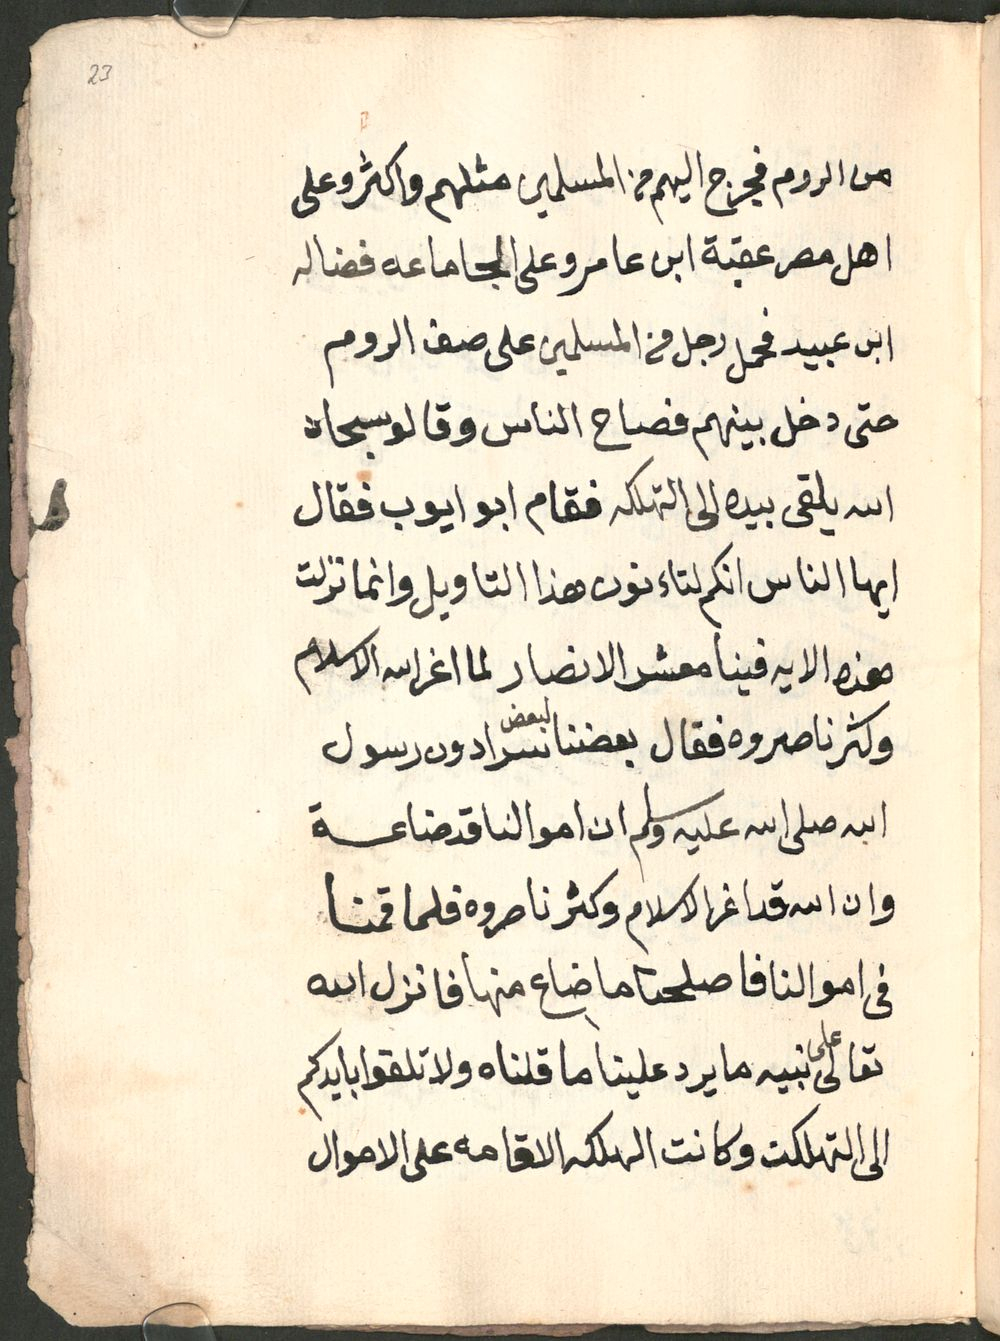 23
من الروم فخرج اليهم من المسلمين مثلهم واكثر وعلى
اهل مصر عقبة ابن عامر وعلى الجاماعه فضاله
ابن عبيد فحمل رجل من المسلمين على صف الروم
حتى دخل بينهم فصاح الناس وقالو سبحان
الله يلقى بيده الى التهلكه فقام ابو ايوب فقال
ايها الناس انكم لتاءنون هذا التاويل وانما نزلت
هذه الايه فينا معشر الانصار لما اغر الله الاسلام
وكثر ناصروه فقال بعضنا لبعض سرا دون رسول
الله صلى الله عليه وسلم ان اموالنا قد ضاعة
وان الله قد اغر الاسلام وكثر ناصروه فلما قمنا
في اموالنا فاصلحنا ما ضاع منها فانزل الله
تعالى على نبيه ما يرد علينا ما قلناه ولا تلقوا بايدكم
الى التهلكت وكانت الهلكه الاقامه على الاموال